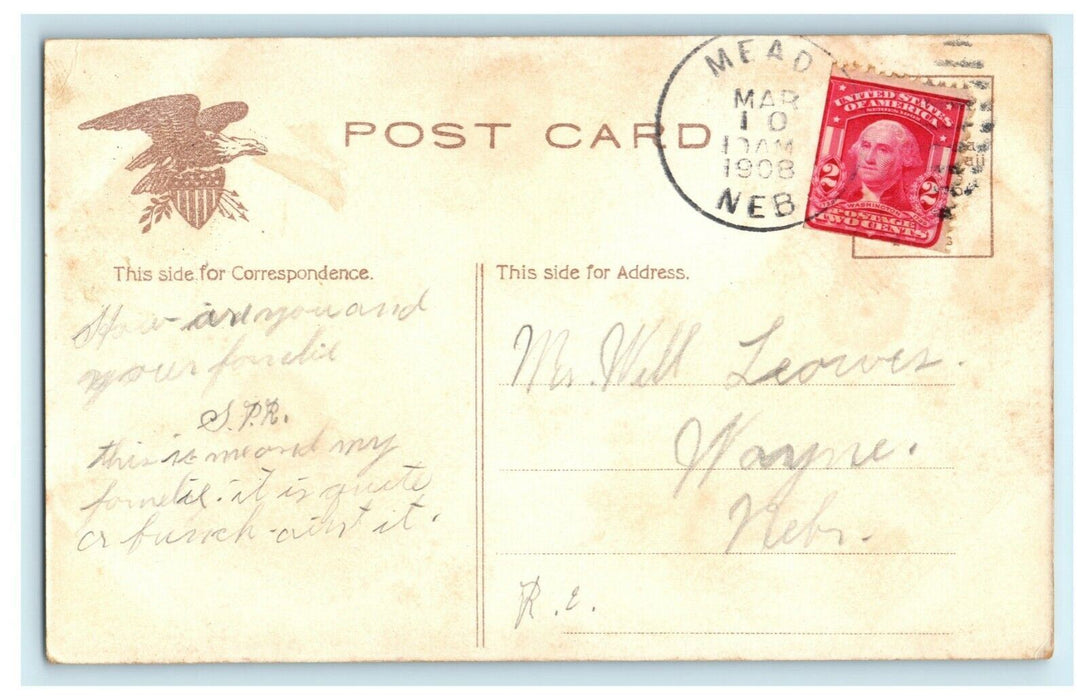 POST CARD
MEAD
MAR
10
10AM
1908
NEB
UNITED STATES
OF AMERICA
2 2
WASHINGTON
POSTAGE
TWO CENTS
This side for Correspondence.
How are you and
your famelie
S.P.R.
this is me and my
famelie. it is quite
a bunch aint it.
This side for Address.
Mr. Will
Wayne.
Nebr.
R.